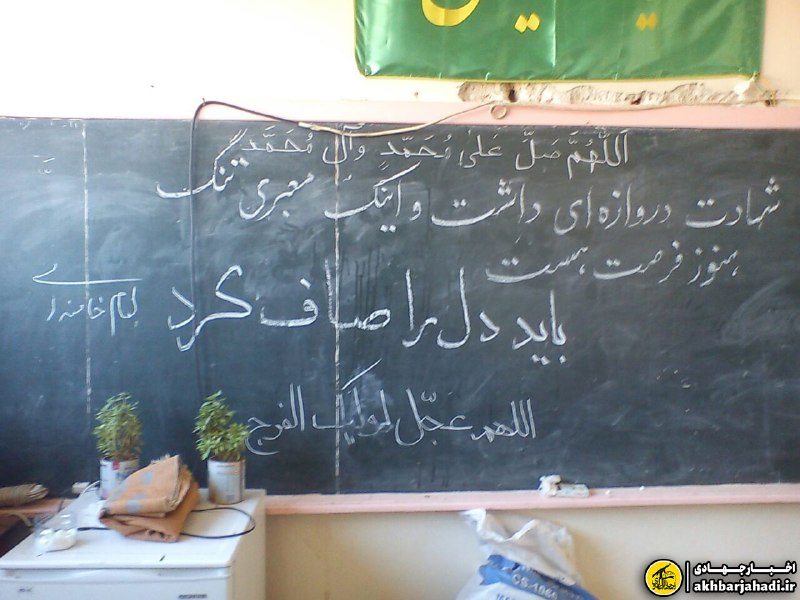 اَللّهُمَّ صَلِّ عَلی مُحَمَّدٍ وَآلِ مُحَمَّد
شهادت دروازه ای داشت و اینک معبری تنگ
هنوز فرصت هست
باید دل را صاف کرد
امام خامنه ای
اللهم عجّل لولیک الفرج
CS-1065
اخبار جهادی
akhbarjahadi.ir